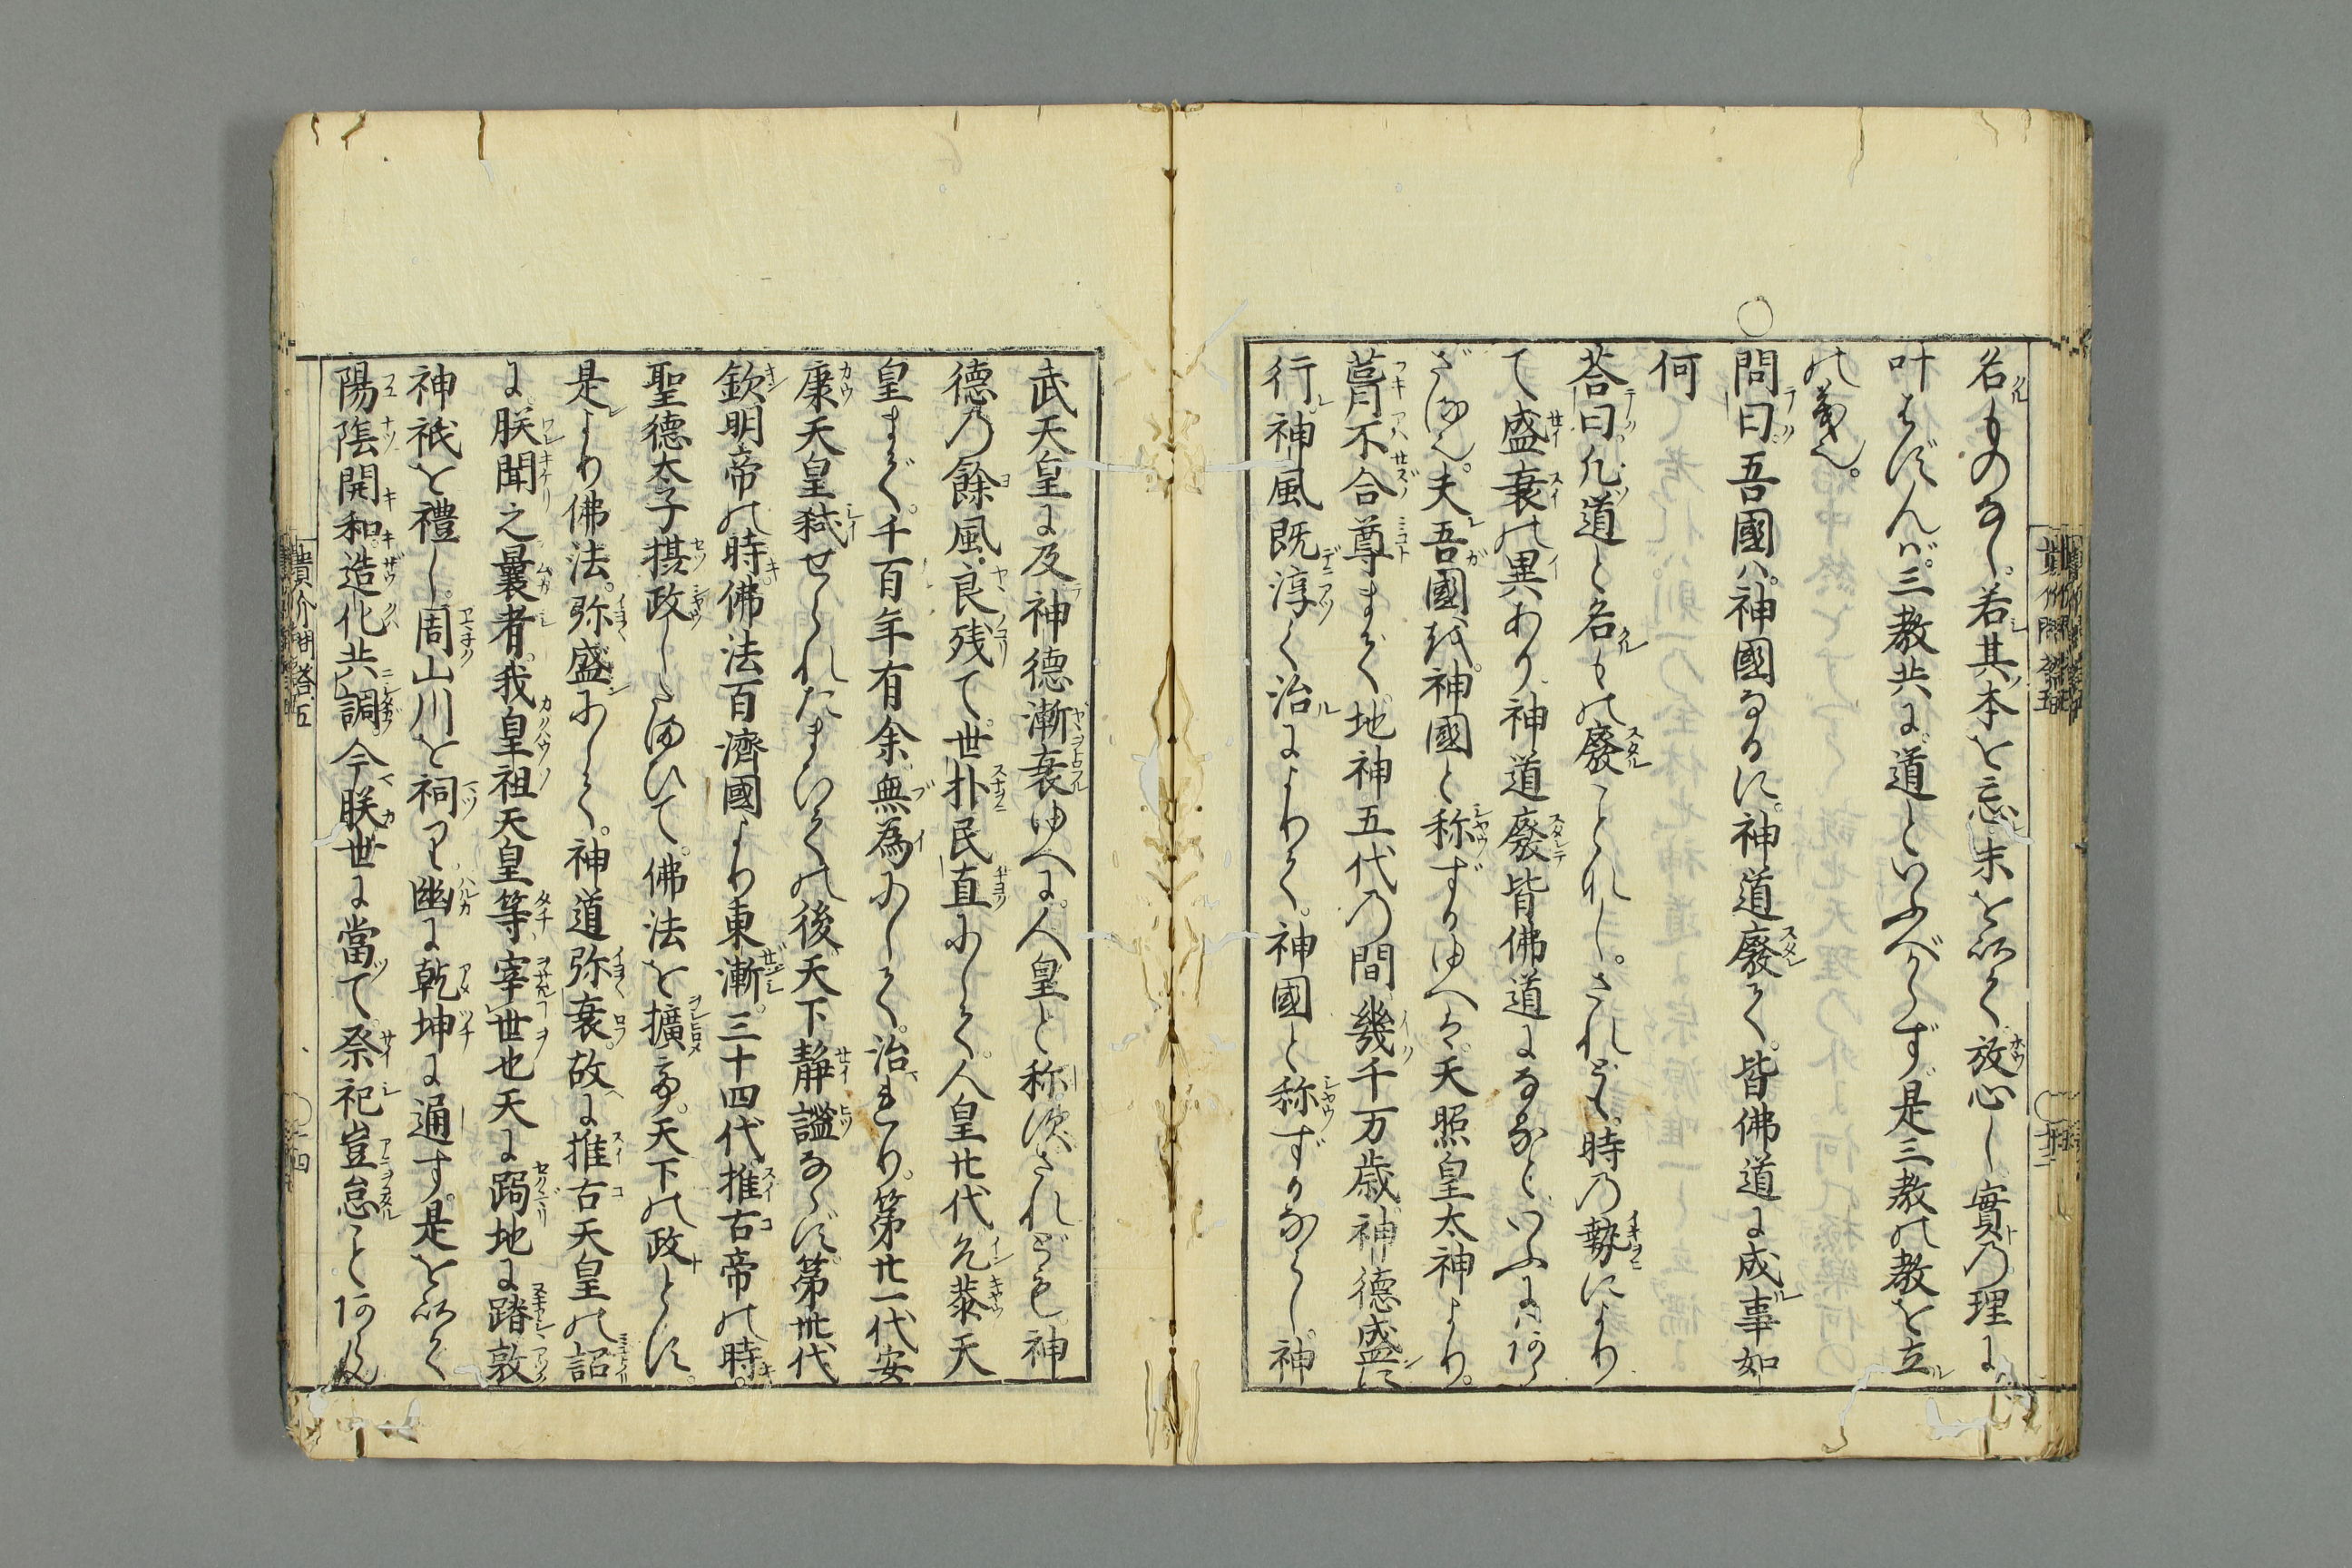 名ものなし。若其本を忘末を以て放心し實乃理に
叶はずんば。三教共に道といふべからず是三教の教を立
の義也。
○問曰。吾國ハ神國なるに。神道廢て。皆佛道に成事如
何
荅曰。凡道と名もの廢ことなし。されども。時乃勢により
て盛衰の異あり。神道廢皆佛道になるといふにハあら
ざる也。夫吾國を。神國と称ずるゆへは。天照皇太神より。
葺不合尊まで。地神五代乃間。幾千万歳。神德盛に
行。神風既淳く治によりて。神國と称ずるなるし。神
武天皇に及神德漸衰ゆへに。人皇と称ず。されども神
德乃餘風。良残て。世朴民直にして。人皇廿代允恭天
皇まで。千百年有余。無為にして。治まれり。第廿一代安
康天皇弑せられたまいての後。天下静謐ならず。第卅代
欽明帝の時。佛法百濟國より東漸。三十四代推古帝の時。
聖德太子摂政したまひて。佛法を擴む。天下の政とす。
是より佛法。弥盛にして。神道弥衰。故に推古天皇の詔
に。朕聞之曩者。我皇祖天皇等宰世也天に跼地に踏敦
神祇を禮し。周山川を祠り幽に乾坤に通す。是を以て
陽陰開和。造化共調。今朕世に當て。祭祀豈怠ことあらん
貴介問荅五